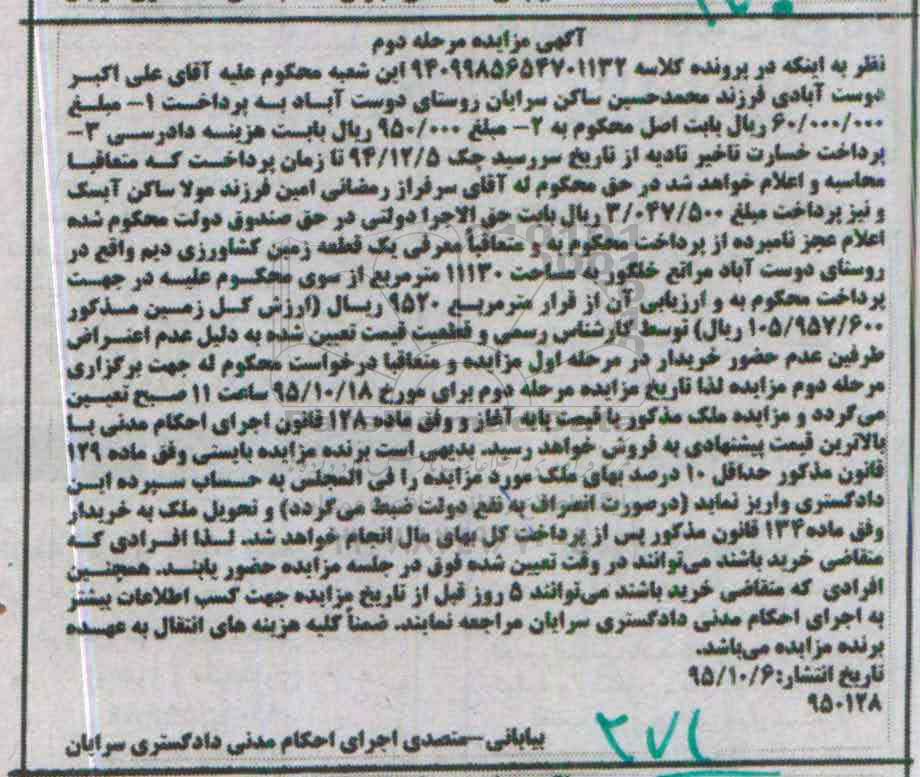 آگهی مزایده مرحله دوم
نظر به اینکه در پرونده کلاسه ۹۴۰۹۹۸۵۶۵۴۷۰۱۱۳۲ این شعبه محکوم علیه آقای علی اکبر
دوست آبادی فرزند محمدحسین ساکن سرایان روستای دوست آباد به پرداخت ۱- مبلغ
۶۰/۰۰۰/۰۰۰ ریال بابت اصل محکوم به ۲- مبلغ ۹۵۰/۰۰۰ ریال بابت هزینه دادرسی ۳-
پرداخت خسارت تاخیر تادیه از تاریخ سررسید چک ۹۴/۱۲/۵ تا زمان پرداخت که متعاقبا
محاسبه و اعلام خواهد شد در حق محکوم له آقای سرفراز رمضانی امین فرزند مولا ساکن آیسک
و نیز پرداخت مبلغ ۳/۰۴۷/۵۰۰ ریال بابت حق الاجرا دولتی در حق صندوق دولت محکوم شده
اعلام عجز نامبرده از پرداخت محکوم به و متعاقباً معرفی یک قطعه زمین کشاورزی دیم واقع در
روستای دوست آباد مراتع خلکور به مساحت ۱۱۱۳۰ مترمربع از سوی محکوم علیه در جهت
پرداخت محکوم به و ارزیابی آن از قرار مترمربع ۹۵۲۰ ریال (ارزش کل زمین مذکور
۱۰۵/۹۵۷/۶۰۰ ریال) توسط کارشناس رسمی و قطعیت قیمت تعیین شده به دلیل عدم اعتراض
طرفین عدم حضور خریدار در مرحله اول مزایده و متعاقبا درخواست محکوم له جهت برگزاری
مرحله دوم مزایده لذا تاریخ مزایده مرحله دوم برای مورخ ۹۵/۱۰/۱۸ ساعت ۱۱ صبح تعیین
می‌گردد و مزایده ملک مذکور با قیمت پایه آغاز و وفق ماده ۱۲۸ قانون اجرای احکام مدنی با
بالاترین قیمت پیشنهادی به فروش خواهد رسید. بدیهی است برنده مزایده بایستی وفق ماده ۱۲۹
قانون مذکور حداقل ۱۰ درصد بهای ملک مورد مزایده را فی المجلس به حساب سپرده این
دادگستری واریز نماید (درصورت انصراف به نفع دولت ضبط می‌گردد) و تحویل ملک به خریدار
وفق ماده۱۳۴ قانون مذکور پس از پرداخت کل بهای مال انجام خواهد شد. لذا افرادی که
متقاضی خرید باشند می‌توانند در وقت تعیین شده فوق در جلسه مزایده حضور یابند. همچنین
افرادی که متقاضی خرید باشند می‌توانند ۵ روز قبل از تاریخ مزایده جهت کسب اطلاعات بیشتر
به اجرای احکام مدنی دادگستری سرایان مراجعه نمایند. ضمناً کلیه هزینه های انتقال به عهده
برنده مزایده می‌باشد.
تاریخ انتشار:۹۵/۱۰/۶
۹۵۰۱۲۸
بیابانی-متصدی اجرای احکام مدنی دادگستری سرایان
۲۷۱